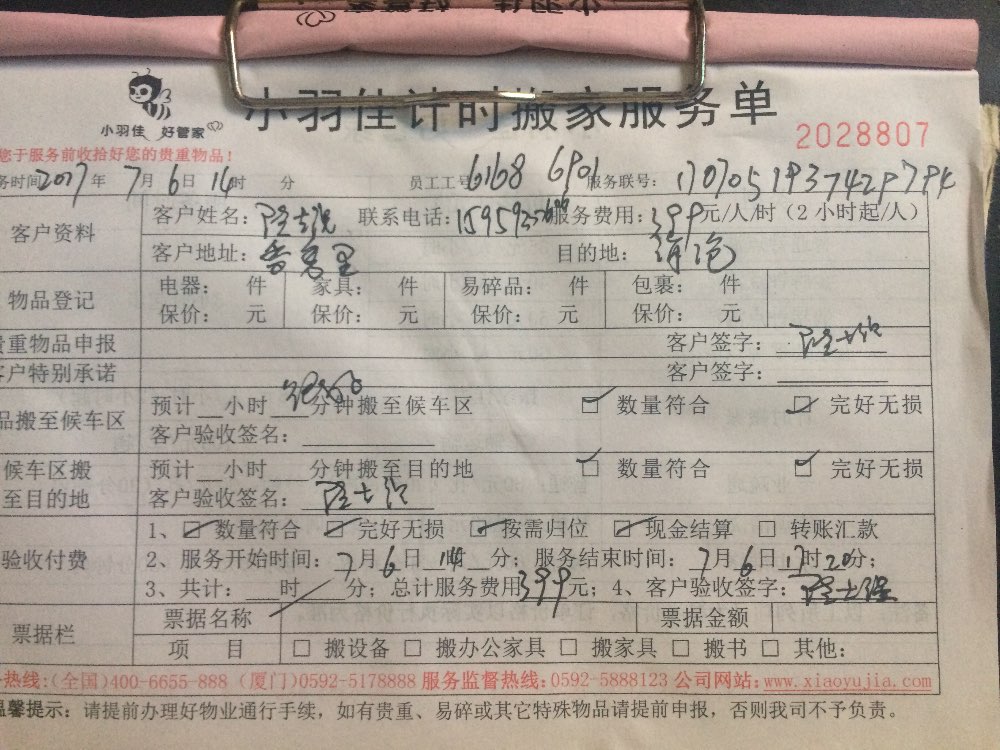 小羽佳 好管家
小羽佳计时搬家服务单
2028807
您于服务前收拾好您的贵重物品!
务时间2017年7月6日14时 分 员工工号6168 6901 服务联号:
客户资料
客户姓名: 联系电话: 服务费用:399元/人/时(2小时起/人)
客户地址: 目的地:
物品登记
电器: 件 家具: 件 易碎品: 件 包裹: 件
保价: 元 保价: 元 保价: 元 保价: 元
贵重物品申报 客户签字:
客户特别承诺 客户签字:
品搬至候车区
预计__小时 分钟搬至候车区 数量符合 完好无损
客户验收签名:
候车区搬
至目的地
预计__小时 分钟搬至目的地 数量符合 完好无损
客户验收签名:
验收付费
1、数量符合 完好无损 按需归位 现金结算 转账汇款
2、服务开始时间:7月6日14时 分;服务结束时间:7月6日17时20分;
3、共计: 时 分;总计服务费用399元;4、客户验收签字:
票据栏
票据名称 票据金额
项 目 搬设备 搬办公家具 搬家具 搬书 其他:
热线:(全国)400-6655-888 (厦门)0592-5178888 服务监督热线:0592-5888123 公司网站:www.xiaoyujia.com
温馨提示:请提前办理好物业通行手续,如有贵重、易碎或其它特殊物品请提前申报,否则我司不予负责。